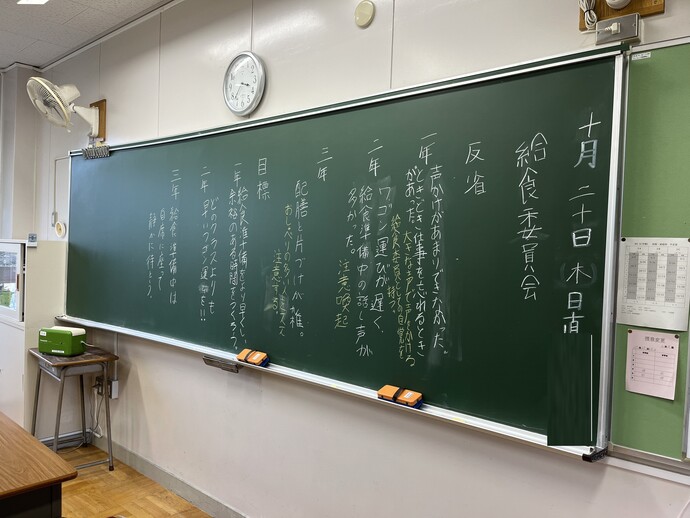 十月二十日木日直
給食委員会
反省
一年
声かけがあまりできなかった。
ときどき仕事を忘れるとき
があった。
大きな声で声をかける
給食委員としての自覚を
二年
ワゴン運びが遅く、
給食準備中の話し声が
多かった。
注意喚起
三年
配膳と片づけが雑。
おしゃべりの
注意する。
目標
一年
給食準備をより早くし、
余裕のある時間をつくろう。
二年
どのクラスよりも
早いワゴン運びを!!
三年
給食準備中は
自席に座って
静かに待とう。